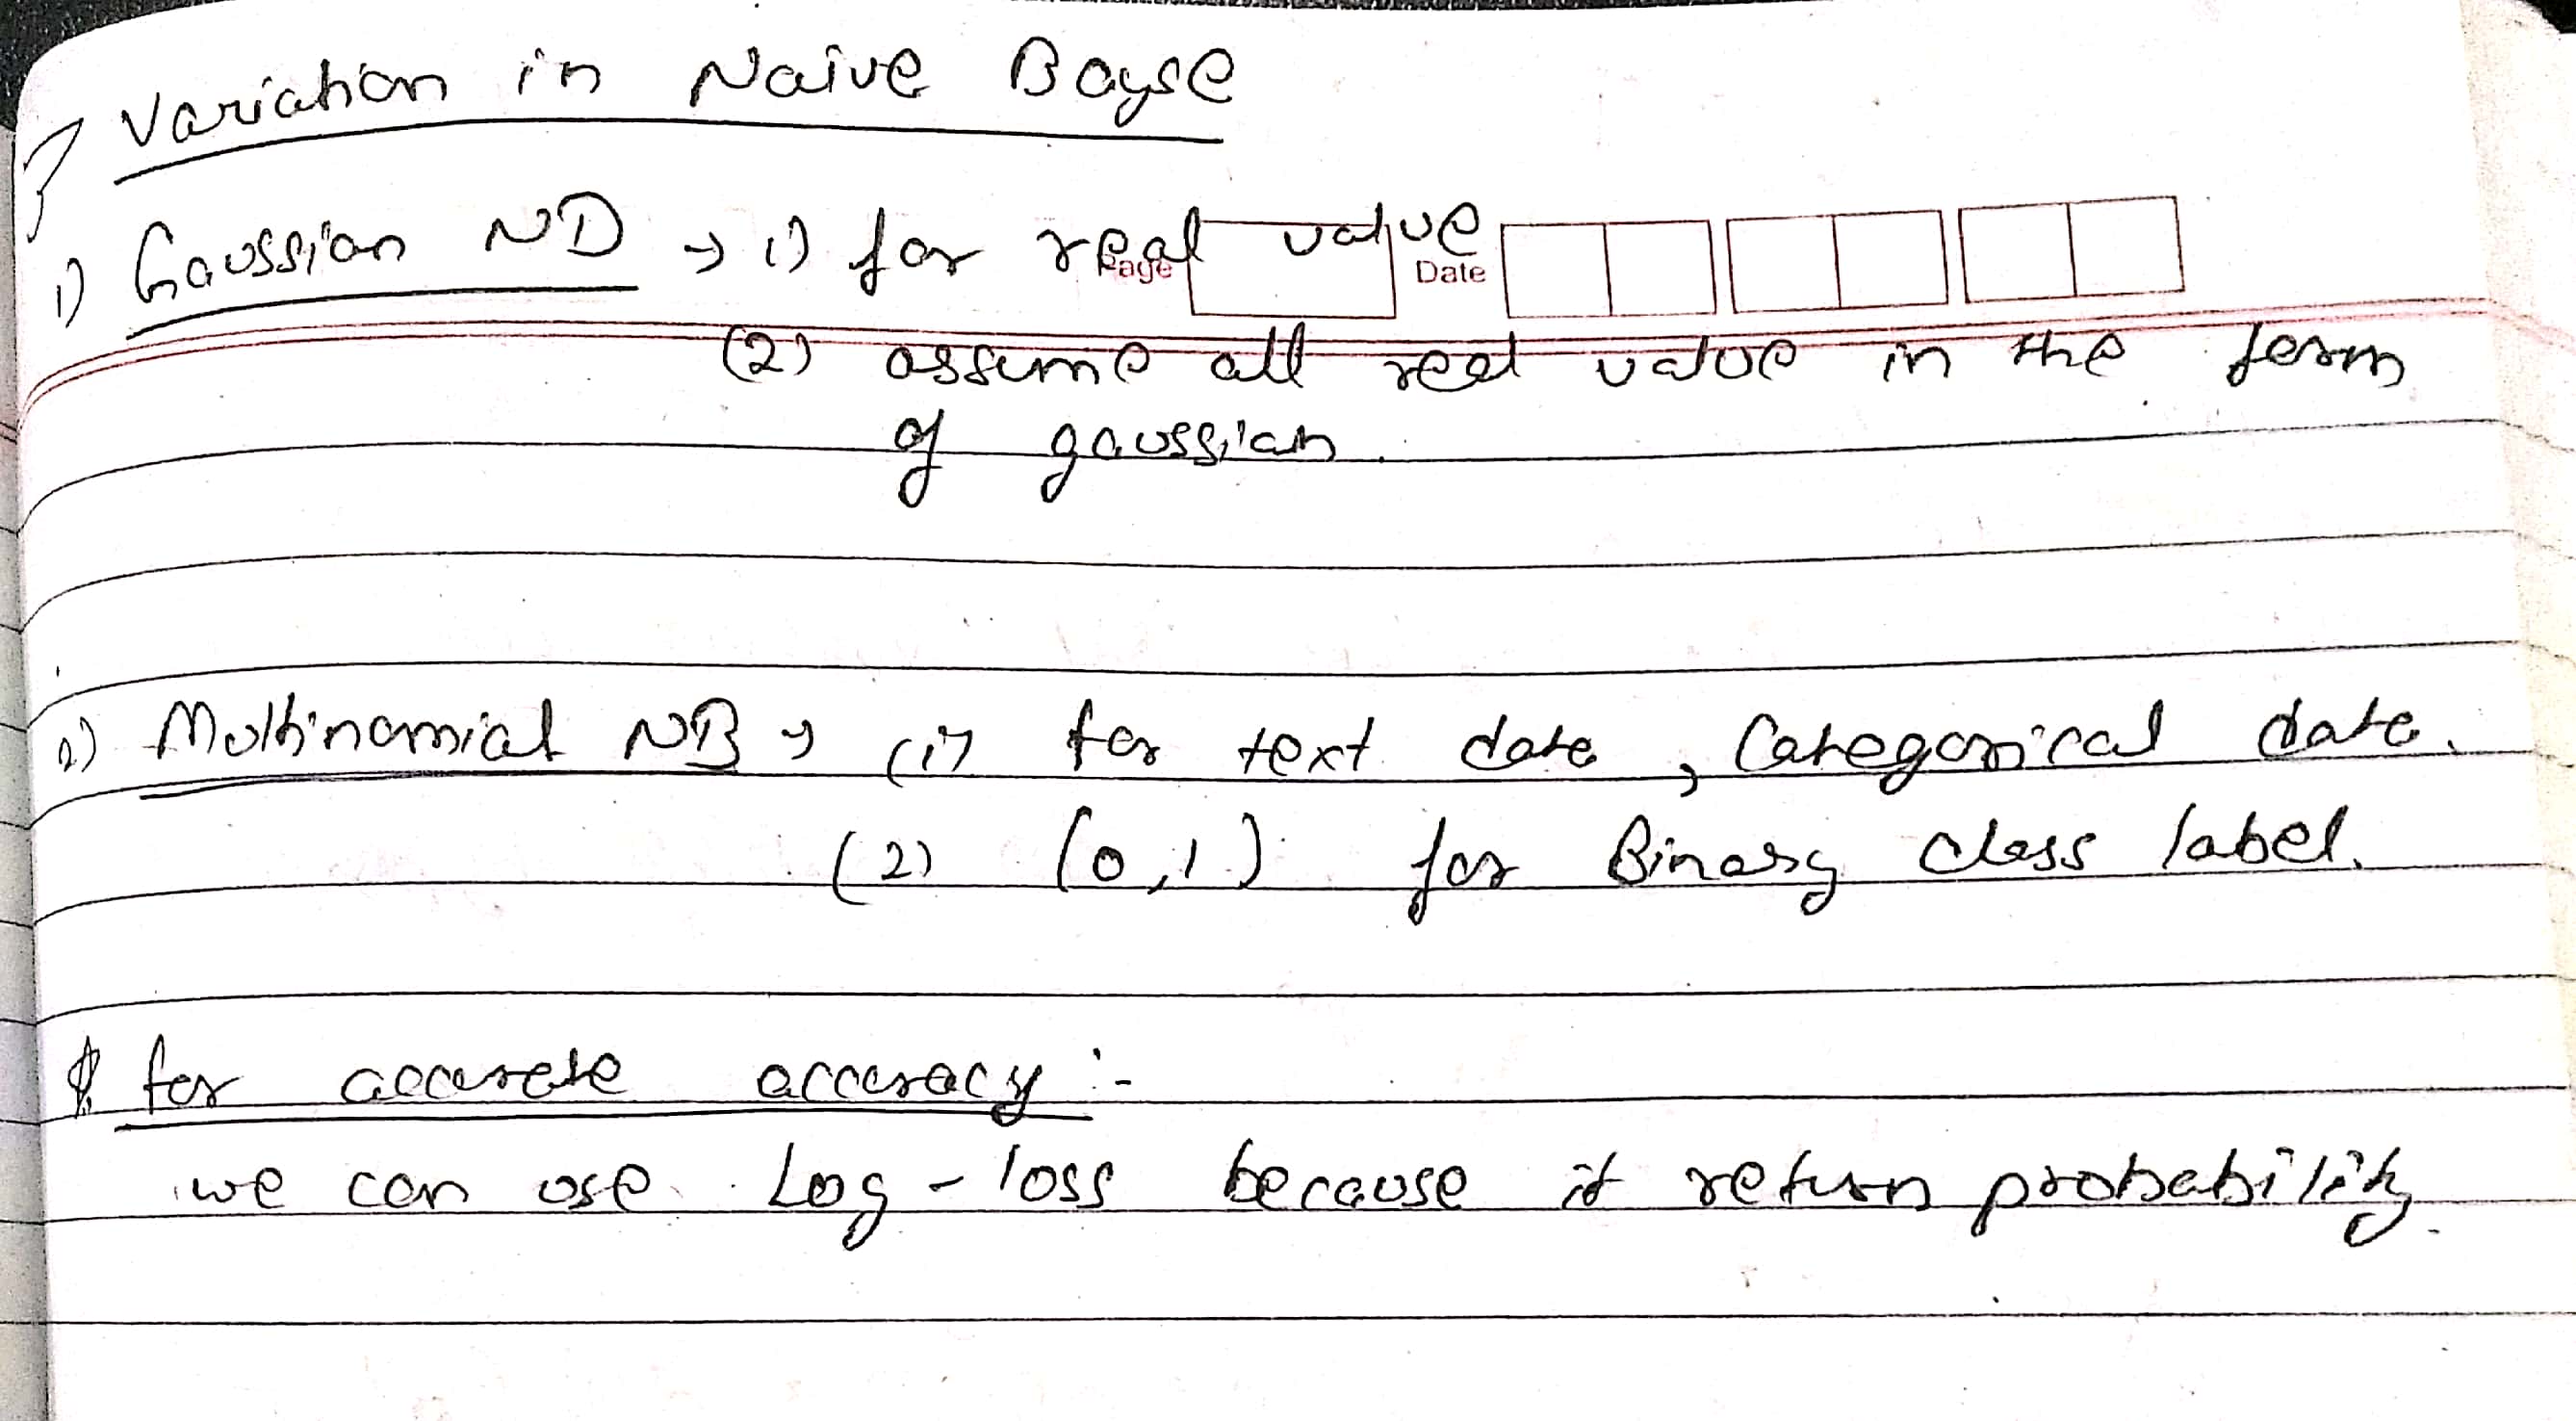 Variation in Naive Bayse
1) Gaussian ND → 1) for real value
Page Date
(2) assume all real value in the form
of gaussian.
2) Multinomial NB → (1) for text data, Categorical data.
(2) (0,1) for Binary class label.
for accurate accuracy :-
we can use Log-loss because it return probability.